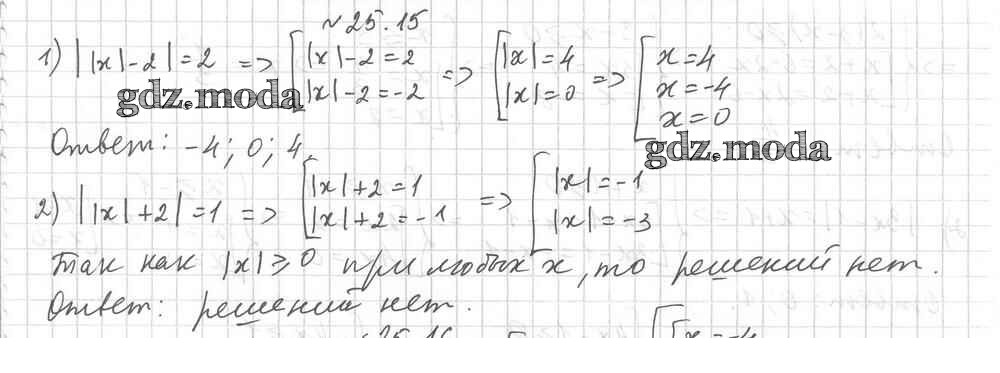 № 25.15
1) ||x|-2|=2 => [ |x|-2=2 |x|-2=-2 => [ |x|=4 |x|=0 => [ x=4 x=-4 x=0
gdz.moda
Ответ: -4; 0; 4.
gdz.moda
2) ||x|+2|=1 => [ |x|+2=1 |x|+2=-1 => [ |x|=-1 |x|=-3
Так как |x|≥0 при любых x, то решений нет.
Ответ: решений нет.